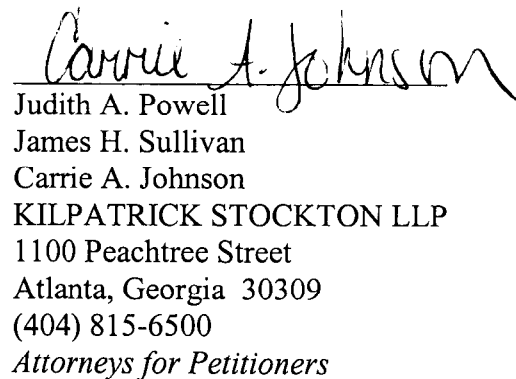 Carrie A. Johnson
Judith A. Powell
James H. Sullivan
Carrie A. Johnson
KILPATRICK STOCKTON LLP
1100 Peachtree Street
Atlanta, Georgia 30309
(404) 815-6500
Attorneys for Petitioners